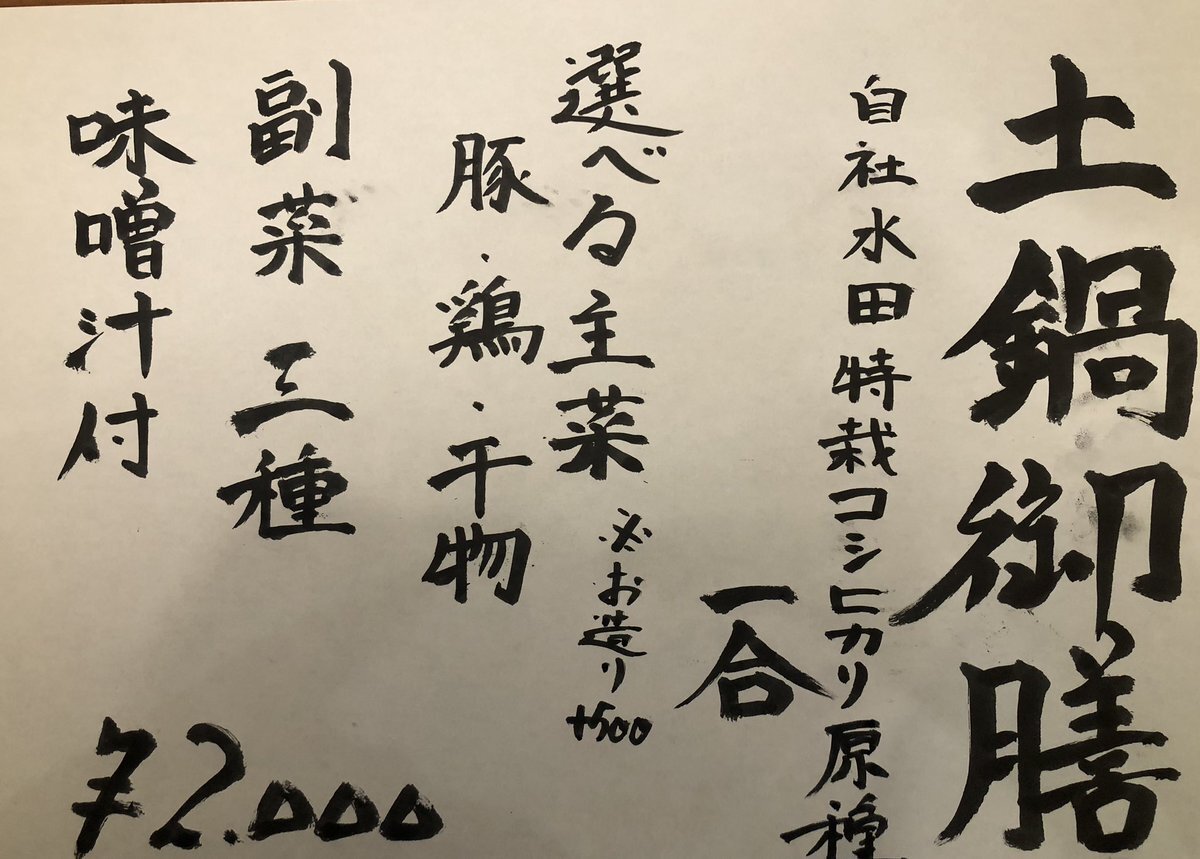 土鍋御膳
自社水田特栽コシヒカリ原種
一合
選べる主菜
※お造り+500
豚・鶏・干物
副菜三種
味噌汁付
¥2.000